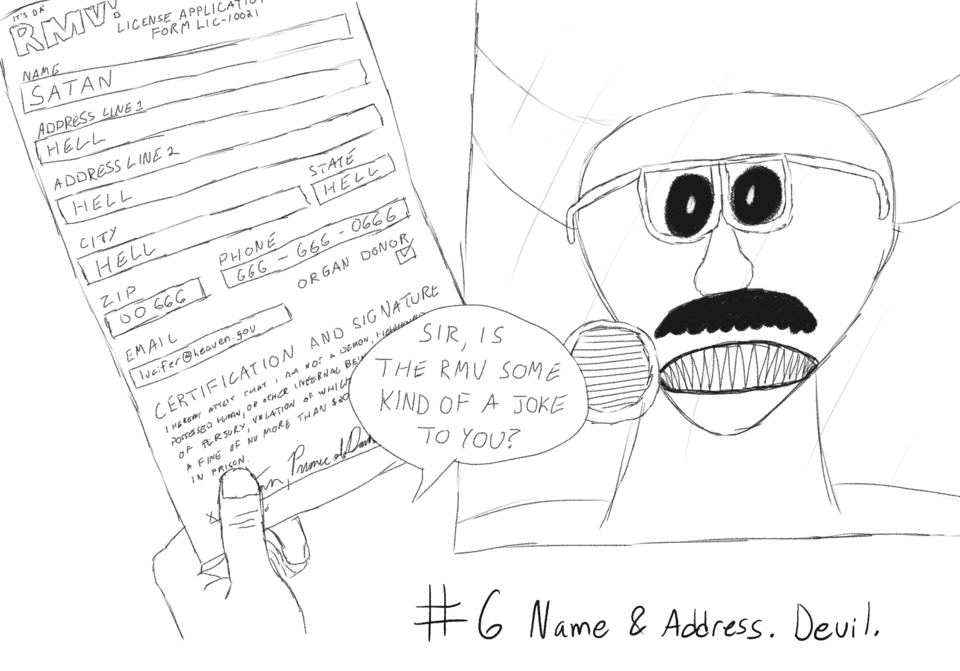 IT'S DA
RMV!
LICENSE APPLICATION
FORM LIC-10021
NAME
SATAN
ADDRESS LINE 1
HELL
ADDRESS LINE 2
HELL
STATE
HELL
CITY
HELL
ZIP
00666
PHONE
666-666-0666
ORGAN DONOR
EMAIL
lucifer@heaven.gov
CERTIFICATION AND SIGNATURE
I HEREBY ATTEST THAT I AM NOT A DEMON,
POSSESSED HUMAN, OR OTHER INFERNAL
OF PERJURY, VIOLATION OF
A FINE OF NO MORE THAN
IN PRISON.
X
Prince of
SIR, IS
THE RMV SOME
KIND OF A JOKE
TO YOU?
#6 Name & Address. Devil.